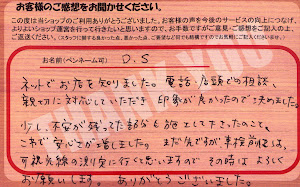 お客様のご感想をお聞かせください。
この度は当ショップのご利用ありがとうございました。お客様の声を今後のサービスの向上につなげ、
よりよいショップ運営を行ってきたいと思いますので、お手数ですがご意見・ご感想をご記入の上、
ご返送ください。
お名前(ペンネーム可) D.S
ネットでお店を知りました。電話、店頭での相談、
親切に対応していただき 印象が良かったので決めました。
少し、不安が残ってた部分も 施工して下さったのこと、
これで安心さが増しました。まだ先ですが車検前には、
可視光線の測定に行くと思いますので その時は よろしく
お願いします。ありがとうございました。